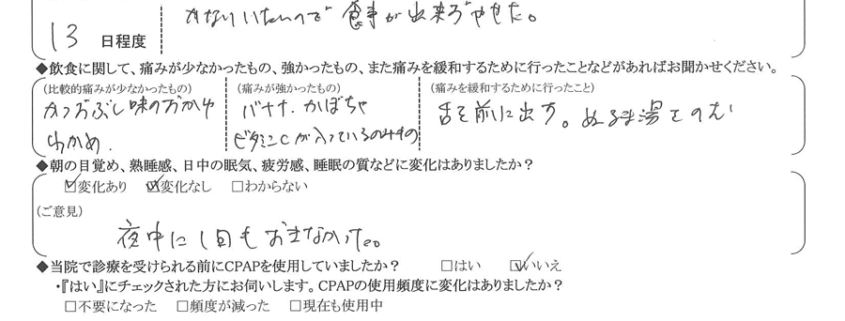 かなりいたいので食事が出来ずやせた。
13 日程度
◆飲食に関して、痛みが少なかったもの、強かったもの、また痛みを緩和するために行ったことなどがあればお聞かせください。
(比較的痛みが少なかったもの) (痛みが強かったもの) (痛みを緩和するために行ったこと)
かつおぶし味のおかゆ バナナ.かぼちゃ 舌を前に出す。ぬるま湯をのむ
わかめ. ビタミンCが入っているのみもの
◆朝の目覚め、熟睡感、日中の眠気、疲労感、睡眠の質などに変化はありましたか?
☑変化あり ☑変化なし □わからない
(ご意見)
夜中に1回もおきなかった。
◆当院で診療を受けられる前にCPAPを使用していましたか? □はい ☑いいえ
・『はい』にチェックされた方にお伺いします。CPAPの使用頻度に変化はありましたか?
□不要になった □頻度が減った □現在も使用中